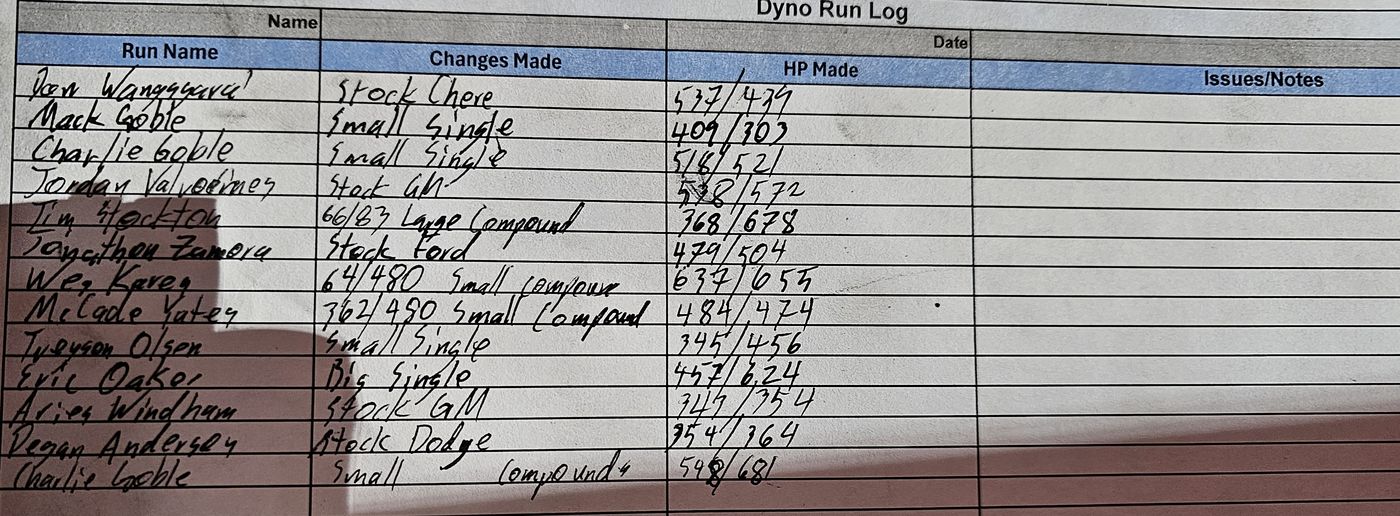 Dyno Run Log
Name
Date
Run Name Changes Made HP Made Issues/Notes
Dan Stock Chevy 537/439
Mack Goble Small Single 409/303
Charlie Goble Small Single 518/521
Jordan Stock GM 538/572
Tim Stockton 66/83 Large Compound 368/678
Jonathon Zamora Stock Ford 479/504
Wes Karen 64/480 Small Compound 637/655
McCade Yates 362/480 Small Compound 484/474
Olsen Small Single 345/456
Eric Oaker Big Single 457/624
Aries Windham Stock GM 347/354
Degan Andersen Stock Dodge 354/364
Charlie Goble Small Compounds 598/681